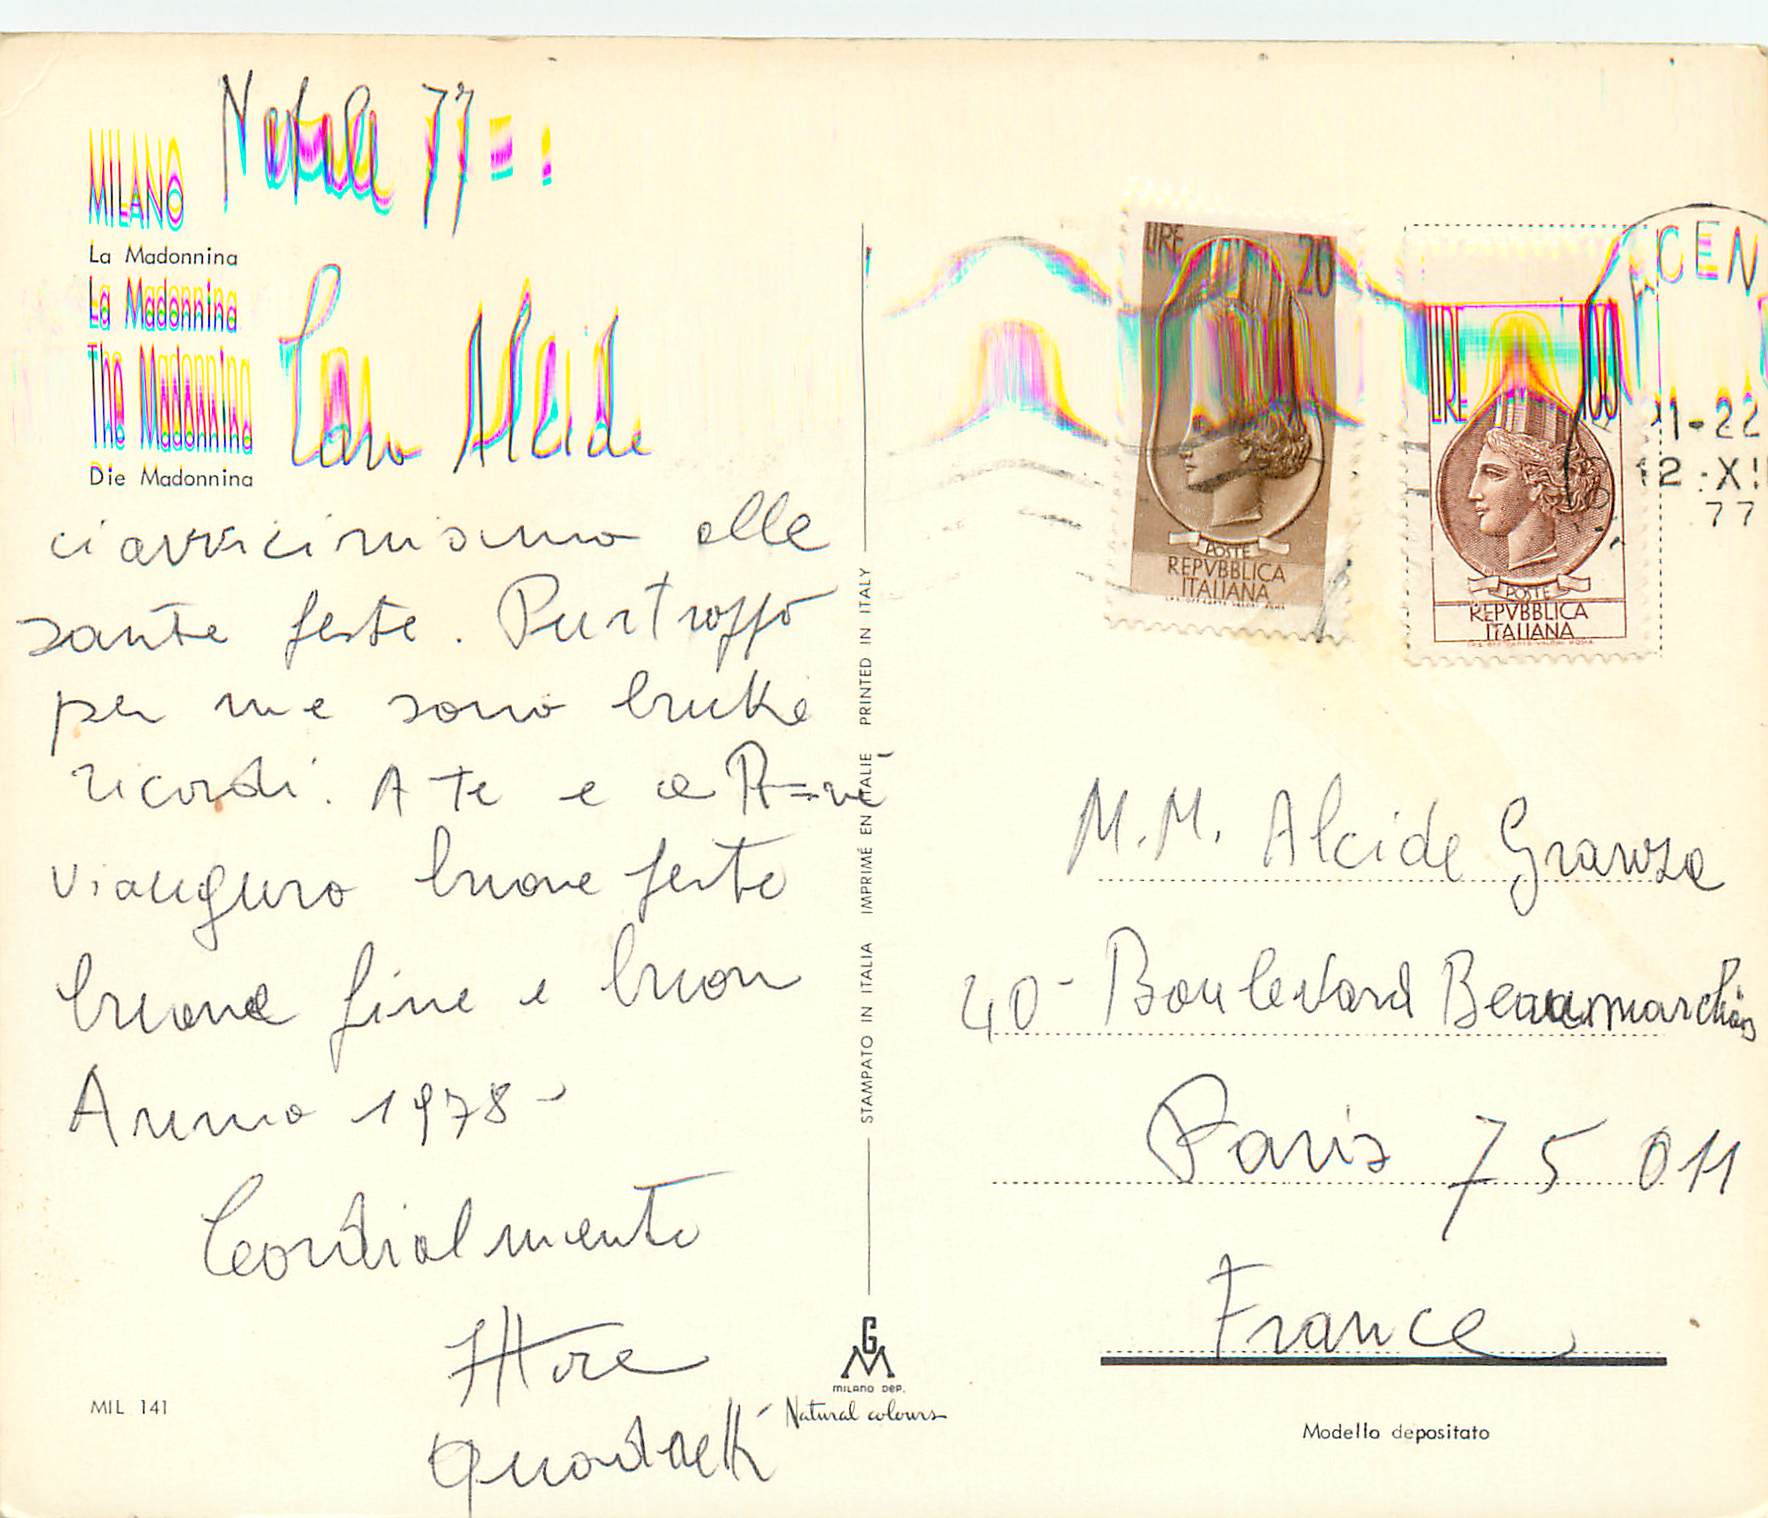 Natale 77 = .
MILANO
La Madonnina
La Madonnina
The Madonnina
The Madonnina
Die Madonnina
Caro Alcide
ci avvicinismo alle
sante feste. Purtroppo
per me sono brutti
ricordi. A te e a
vi auguro buone feste
buone fine e buon
Anno 1978 -
Cordialmente
Ettore
MIL 141
STAMPATO IN ITALIA IMPRIMÉ EN ITALIE PRINTED IN ITALY
GM
MILANO DEP.
Natural colours
LIRE 20
POSTE
REPVBBLICA
ITALIANA
LIRE 100
POSTE
REPVBBLICA
ITALIANA
21-22
12.XII
77
M.M. Alcide Granza
40 - Boulevard Beaumarchais
Paris 75 011
France
Modello depositato